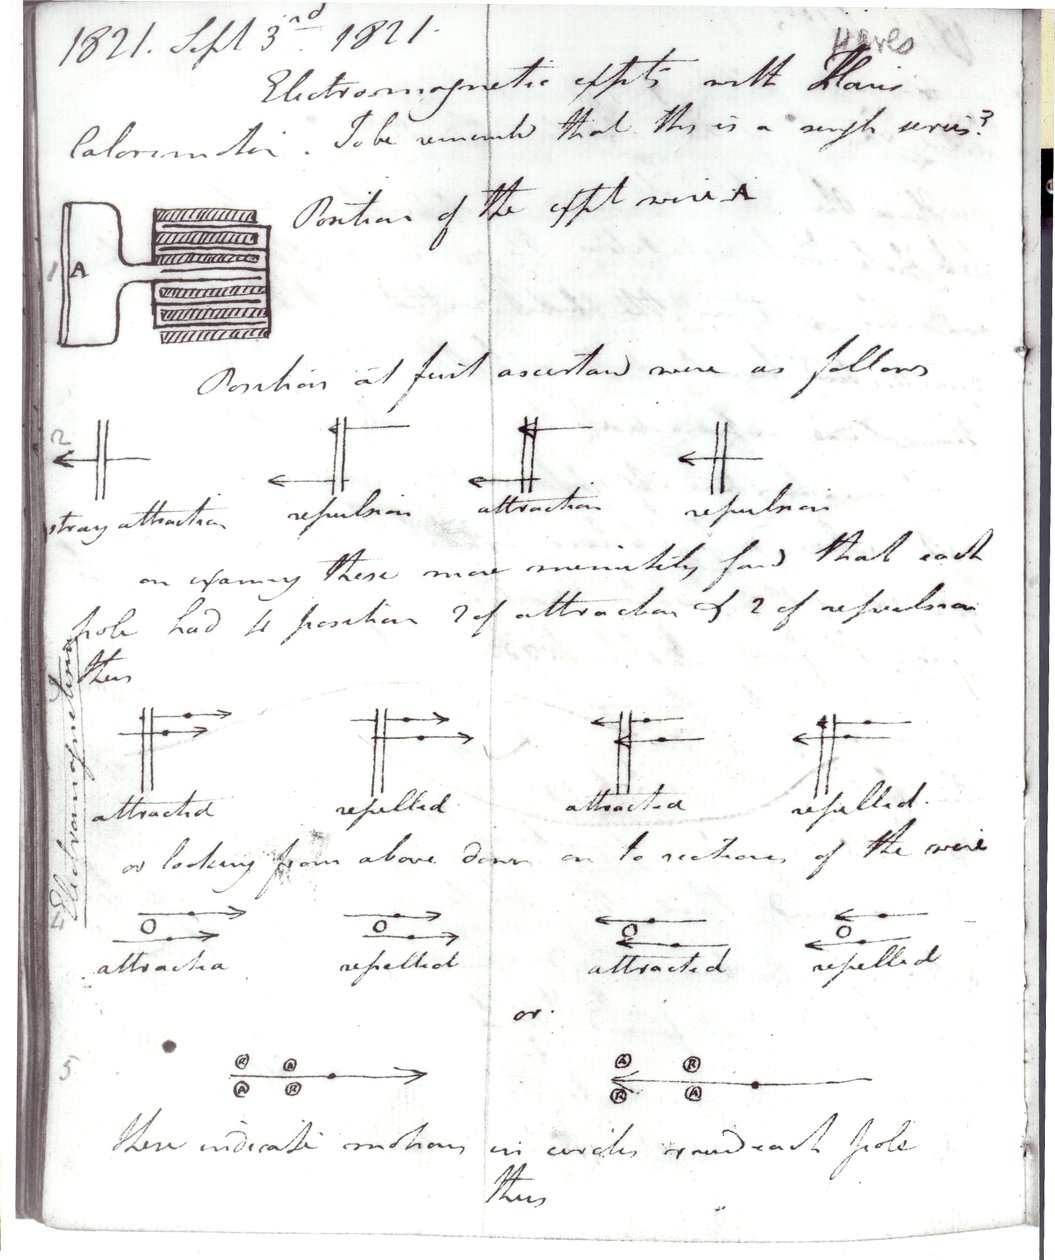 1821. Sept 3rd. 1821.
Hares
Electromagnetic expts with Hares
Calorimotor. To be rememb that this is a single series?
Position of the expt wire A
1
A
Positions at first ascertaind were as follows
2
stray attraction repulsion attraction repulsion
on examng these more minutely found that each
pole had 4 position 2 of attraction & 2 of repulsion
thus
Electromagnetism
attracted repelled attracted repelled.
or looking from above down on to sections of the wire
attracted repelled attracted repelled
or
5
R A A R
A R R A
These indicate motions in circles round each pole
thus